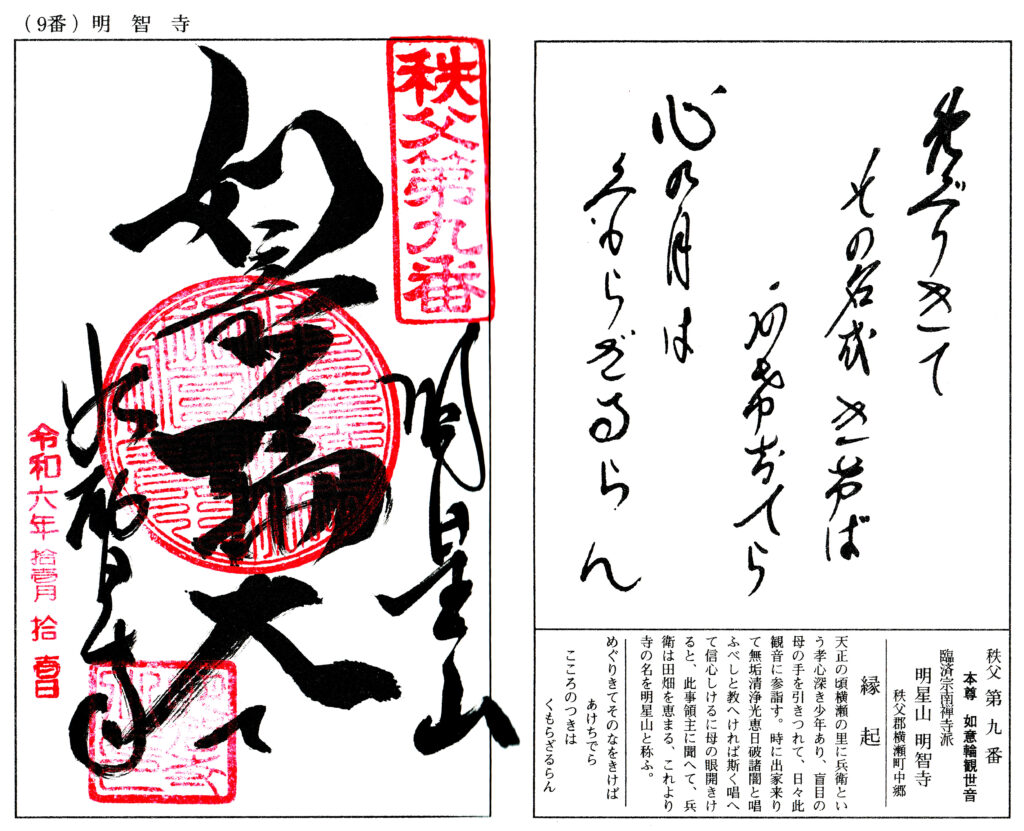 (9番)明智寺
めぐりきて
その名をきけば
あけちてら
心の月は
くもらざるらん
秩父 第九番
本尊 如意輪観世音
臨済宗南禅寺派
明星山 明智寺
秩父郡横瀬町中郷
縁起
天正の頃横瀬の里に兵衛とい
う孝心深き少年あり、盲目の
母の手を引きつれて、日々此
観音に参詣す。時に出家来り
て無垢清浄光恵日破諸闇と唱
ふべしと教へければ斯く唱へ
て信心しけるに母の眼開きけ
ると、此事領主に聞へて、兵
衛は田畑を恵まる、これより
寺の名を明星山と称ふ。
めぐりきてそのなをきけば
あけちでら
こころのつきは
くもらざるらん
秩父第九番
明星山
如意輪大士
明智寺
令和六年 拾壹月 拾壹日